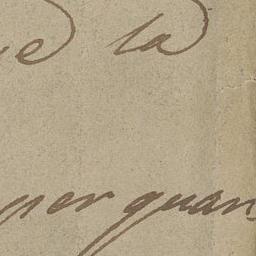 la
per quan